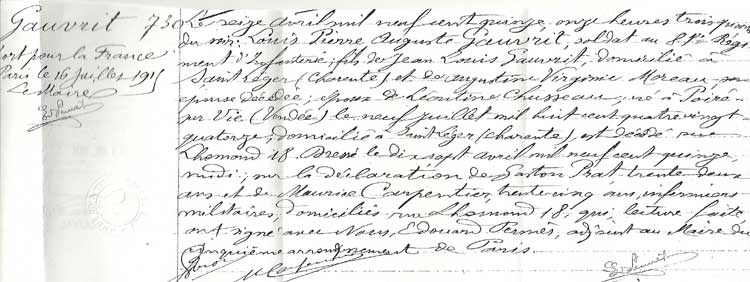 Gauvrit 730
Mort pour la France
Paris le 16 juillet 1915
Le Maire
Le seize avril mil neuf cent quinze, onze heures trois quarts
du soir, Louis Pierre Auguste Gauvrit, soldat au 8 Régi
ment d'Infanterie; fils de Jean Louis Gauvrit, domicilié à
Saint Léger (Charente) et de Augustine Virginie Moreau, son
épouse décédée; époux de Léontine Chusseau; né à Poiré
sur Vie (Vendée) le neuf juillet mil huit cent quatre vingt
quatorze, domicilié à Saint Léger (Charente), est décédé rue
Lhomond 18. Dressé le dix sept avril mil neuf cent quinze,
midi; sur la déclaration de Gaston Prat, trente deux
ans et de Maurice Carpentier, trente cinq ans, infirmiers
militaires, domiciliés rue Lhomond 18, qui, lecture faite
ont signé avec Nous, Edouard Permes, adjoint au Maire du
Cinquième arrondissement de Paris.